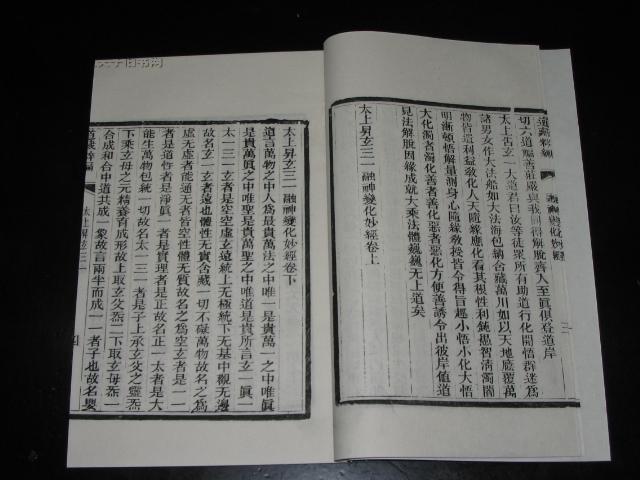 切六道福善莊嚴與我同得解脫齊人至眞俱登道岸
太上告玄一大道君曰汝等徒眾所有助道行化開悟群迷爲
諸男女作大法船如大法海包納合藏萬川如以天地廕覆萬
物皆遣利益敎化人天隨緣應化看其根性利鈍愚智淸濁闇
明漸頓悟解量測身心隨緣敎授皆令得旨趣小悟小化大悟
大化濁者濁化善者善化惡者惡化方便善誘令出彼岸値道
見法解脫因緣成就大乘法體巍巍无上道矣
太上昇玄三一融神變化妙經卷上
太上昇玄三一融神變化妙經卷下
道言萬物之中人爲最貴萬法之中唯一是貴萬一之中唯眞
是貴萬眞之中唯聖是貴萬聖之中唯道是貴所言玄一眞一
太一三一者玄者是空空虛玄遠統上无極統下无基中觀无邊
故名玄一玄者遠也體性无實含藏一切不礙萬物故名之爲
虛玄虛者能通无者皆空性體无質故名之爲空玄者是一一
者是道性者是淨眞一者是實理者是正故名正一太者是大
能生萬物包統一切故名太一三一者是子上承玄父之靈炁
下乘玄母之元精養育成形故上取玄父炁二下取玄母炁一
合成和合中道共成一象故言兩半而成一一者子也故名嬰
太上昇玄三一
四